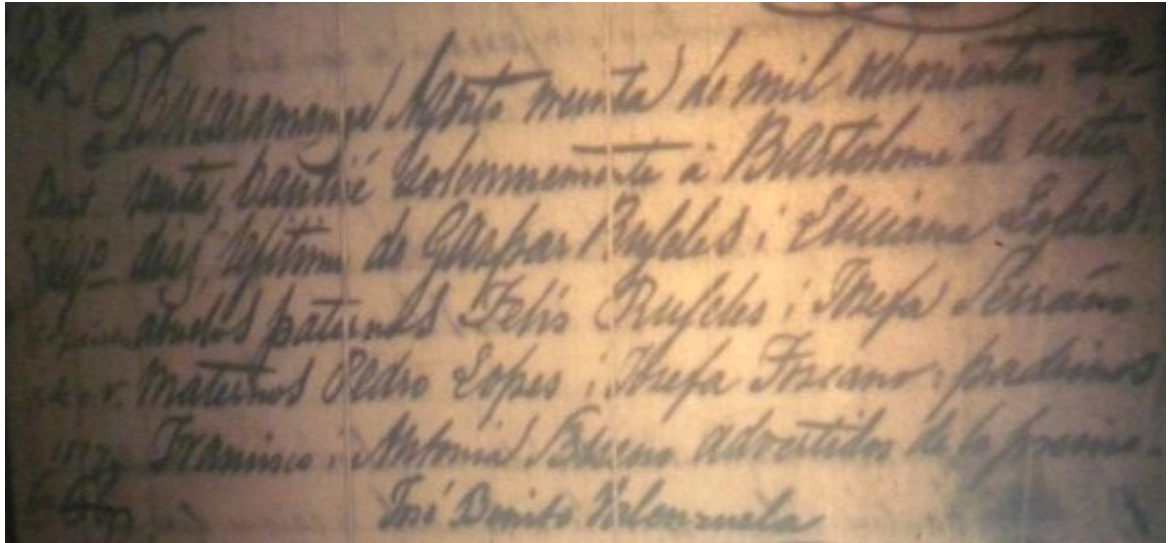 Bucaramanga Agosto treinta de mil ochocientos se-
senta, bautisé solennemente á Bartolomé de siete
dias, legitimo de Gaspar Rufeles i Luciana Lopes:
abuelos paternos Felis Rufeles i Josefa Serrano
Maternos Pedro Lopes i Josefa Toscano: padrinos
Francisco i Antonia advertidos de lo preciso.
José Benito Valenzuela